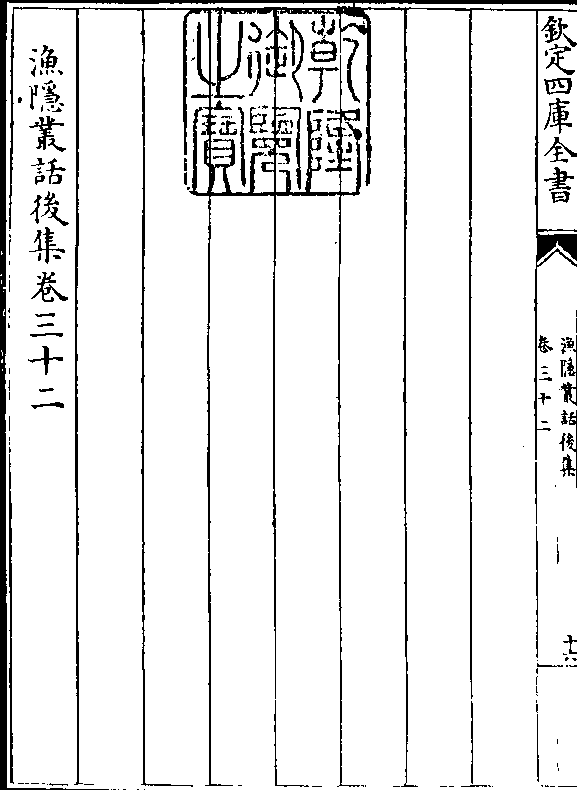 欽定四庫全書
漁隱叢話後集
卷三十二
十六
乾隆御覽之寶
漁隱叢話後集卷三十二